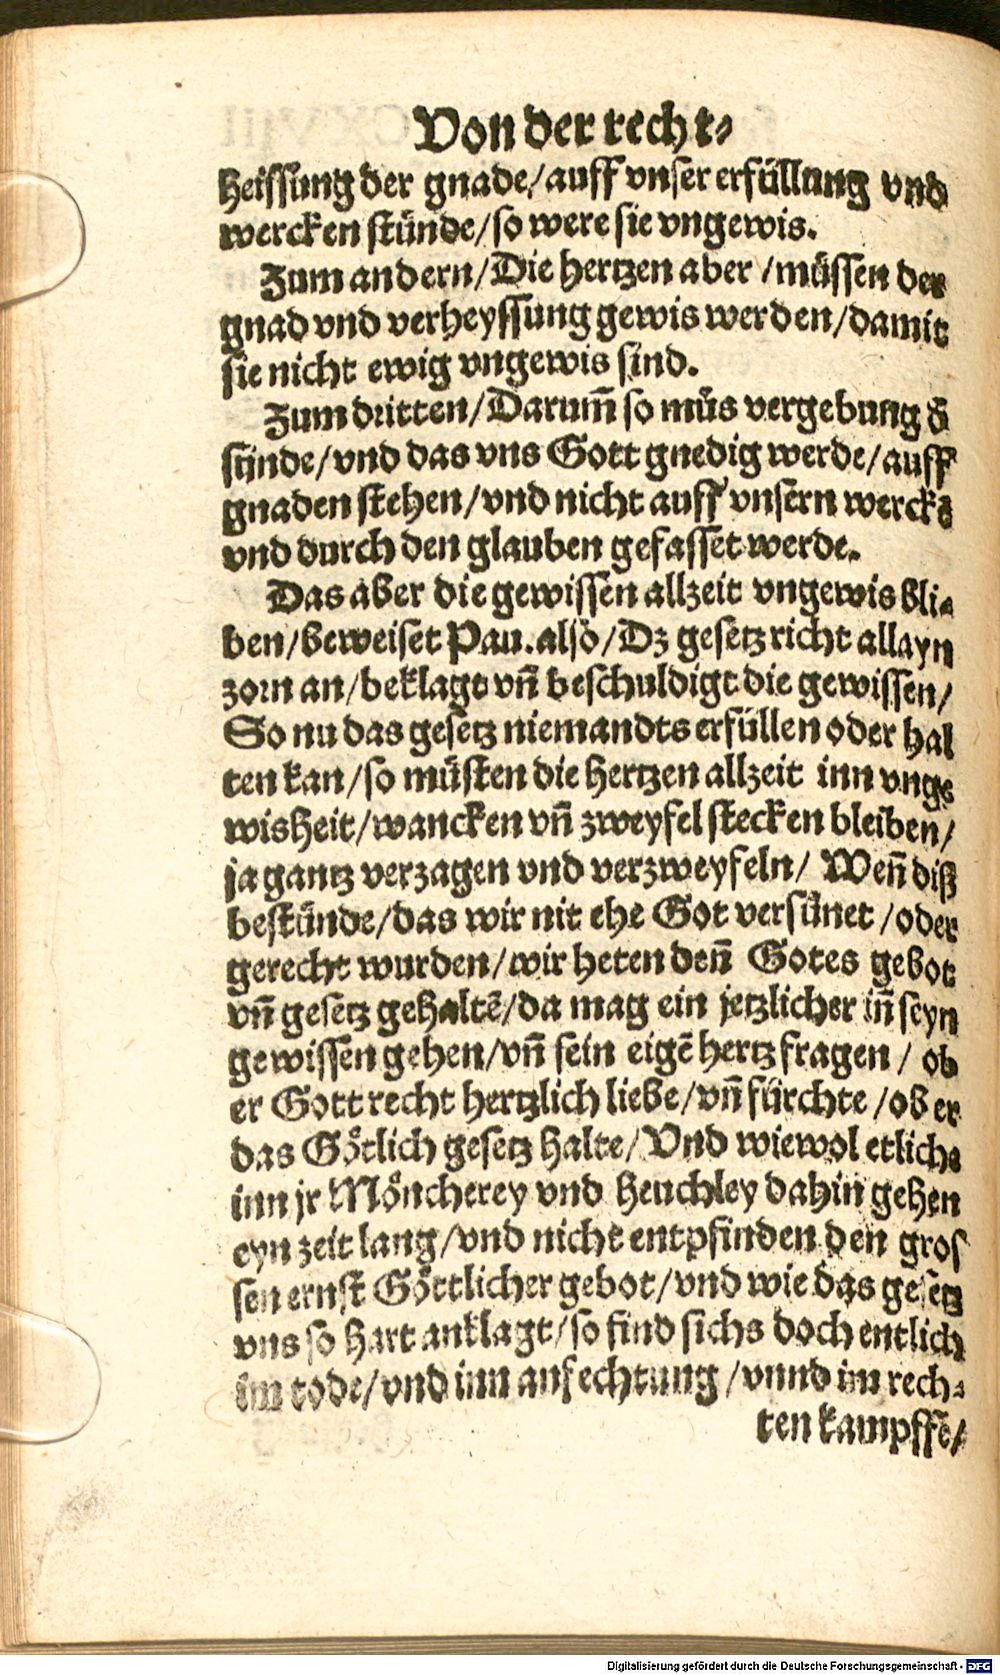 Von der recht⸗
heissung der gnade/auff vnser erfüllung vnd
wercken stünde/so were sie vngewis.
Zum andern/Die hertzen aber/müssen der
gnad vnd verheyssung gewis werden/damit
sie nicht ewig vngewis sind.
Zum dritten/Darum̃ so müs vergebung d̃
sünde/vnd das vns Gott gnedig werde/auff
gnaden stehen/vnd nicht auff vnsern wercke
vnd durch den glauben gefasset werde.
Das aber die gewissen allzeit vngewis bli⸗
ben/beweiset Pau. also/Dz gesetz richt allayn
zorn an/beklagt vñ beschuldigt die gewissen/
So nu das gesetz niemandts erfüllen oder hal
ten kan/so müsten die hertzen allzeit inn vnge
wisheit/wancken vñ zweyfel stecken bleiben/
ja gantz verzagen vnd verzweyfeln/ Weñ diß
bestünde/das wir nit ehe Got versünet/oder
gerecht wurden/wir heten deñ Gotes gebot
vñ gesetz gehaltẽ/da mag ein jetzlicher iñ seyn
gewissen gehen/vñ sein eigẽ hertz fragen/ ob
er Gott recht hertzlich liebe/vñ fürchte/ob er
das Götlich gesetz halte/Vnd wiewol etliche
inn jr Möncherey vnd heuchley dahin gehen
eyn zeit lang/vnd nicht entpfinden den gros
sen ernst Göttlicher gebot/vnd wie das gesetz
vns so hart anklagt/so find sichs doch entlich
im tode/vnd inn anfechtung/vnnd im rech⸗
ten kampffe/
Digitalisierung gefördert durch die Deutsche Forschungsgemeinschaft - DFG